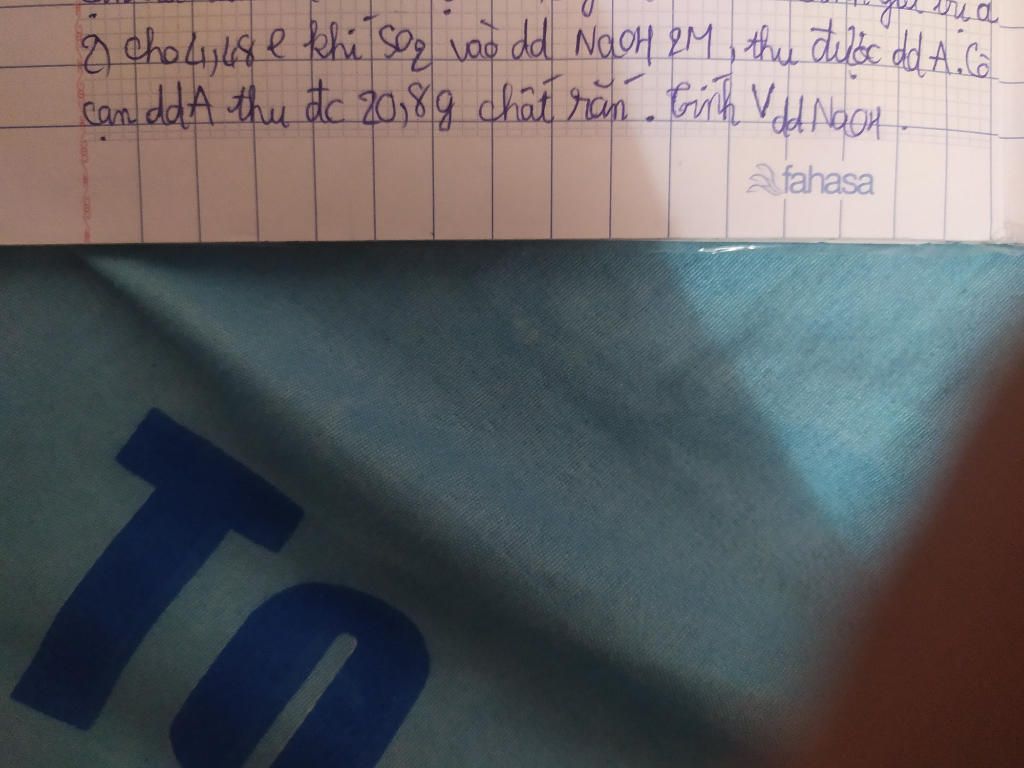 2) Cho 4,48 l khí SO2 vào dd NaOH 2M, thu được dd A. Cô
cạn ddA thu đc 20,8g chất rắn. tính V dd NaOH.
fahasa
TO